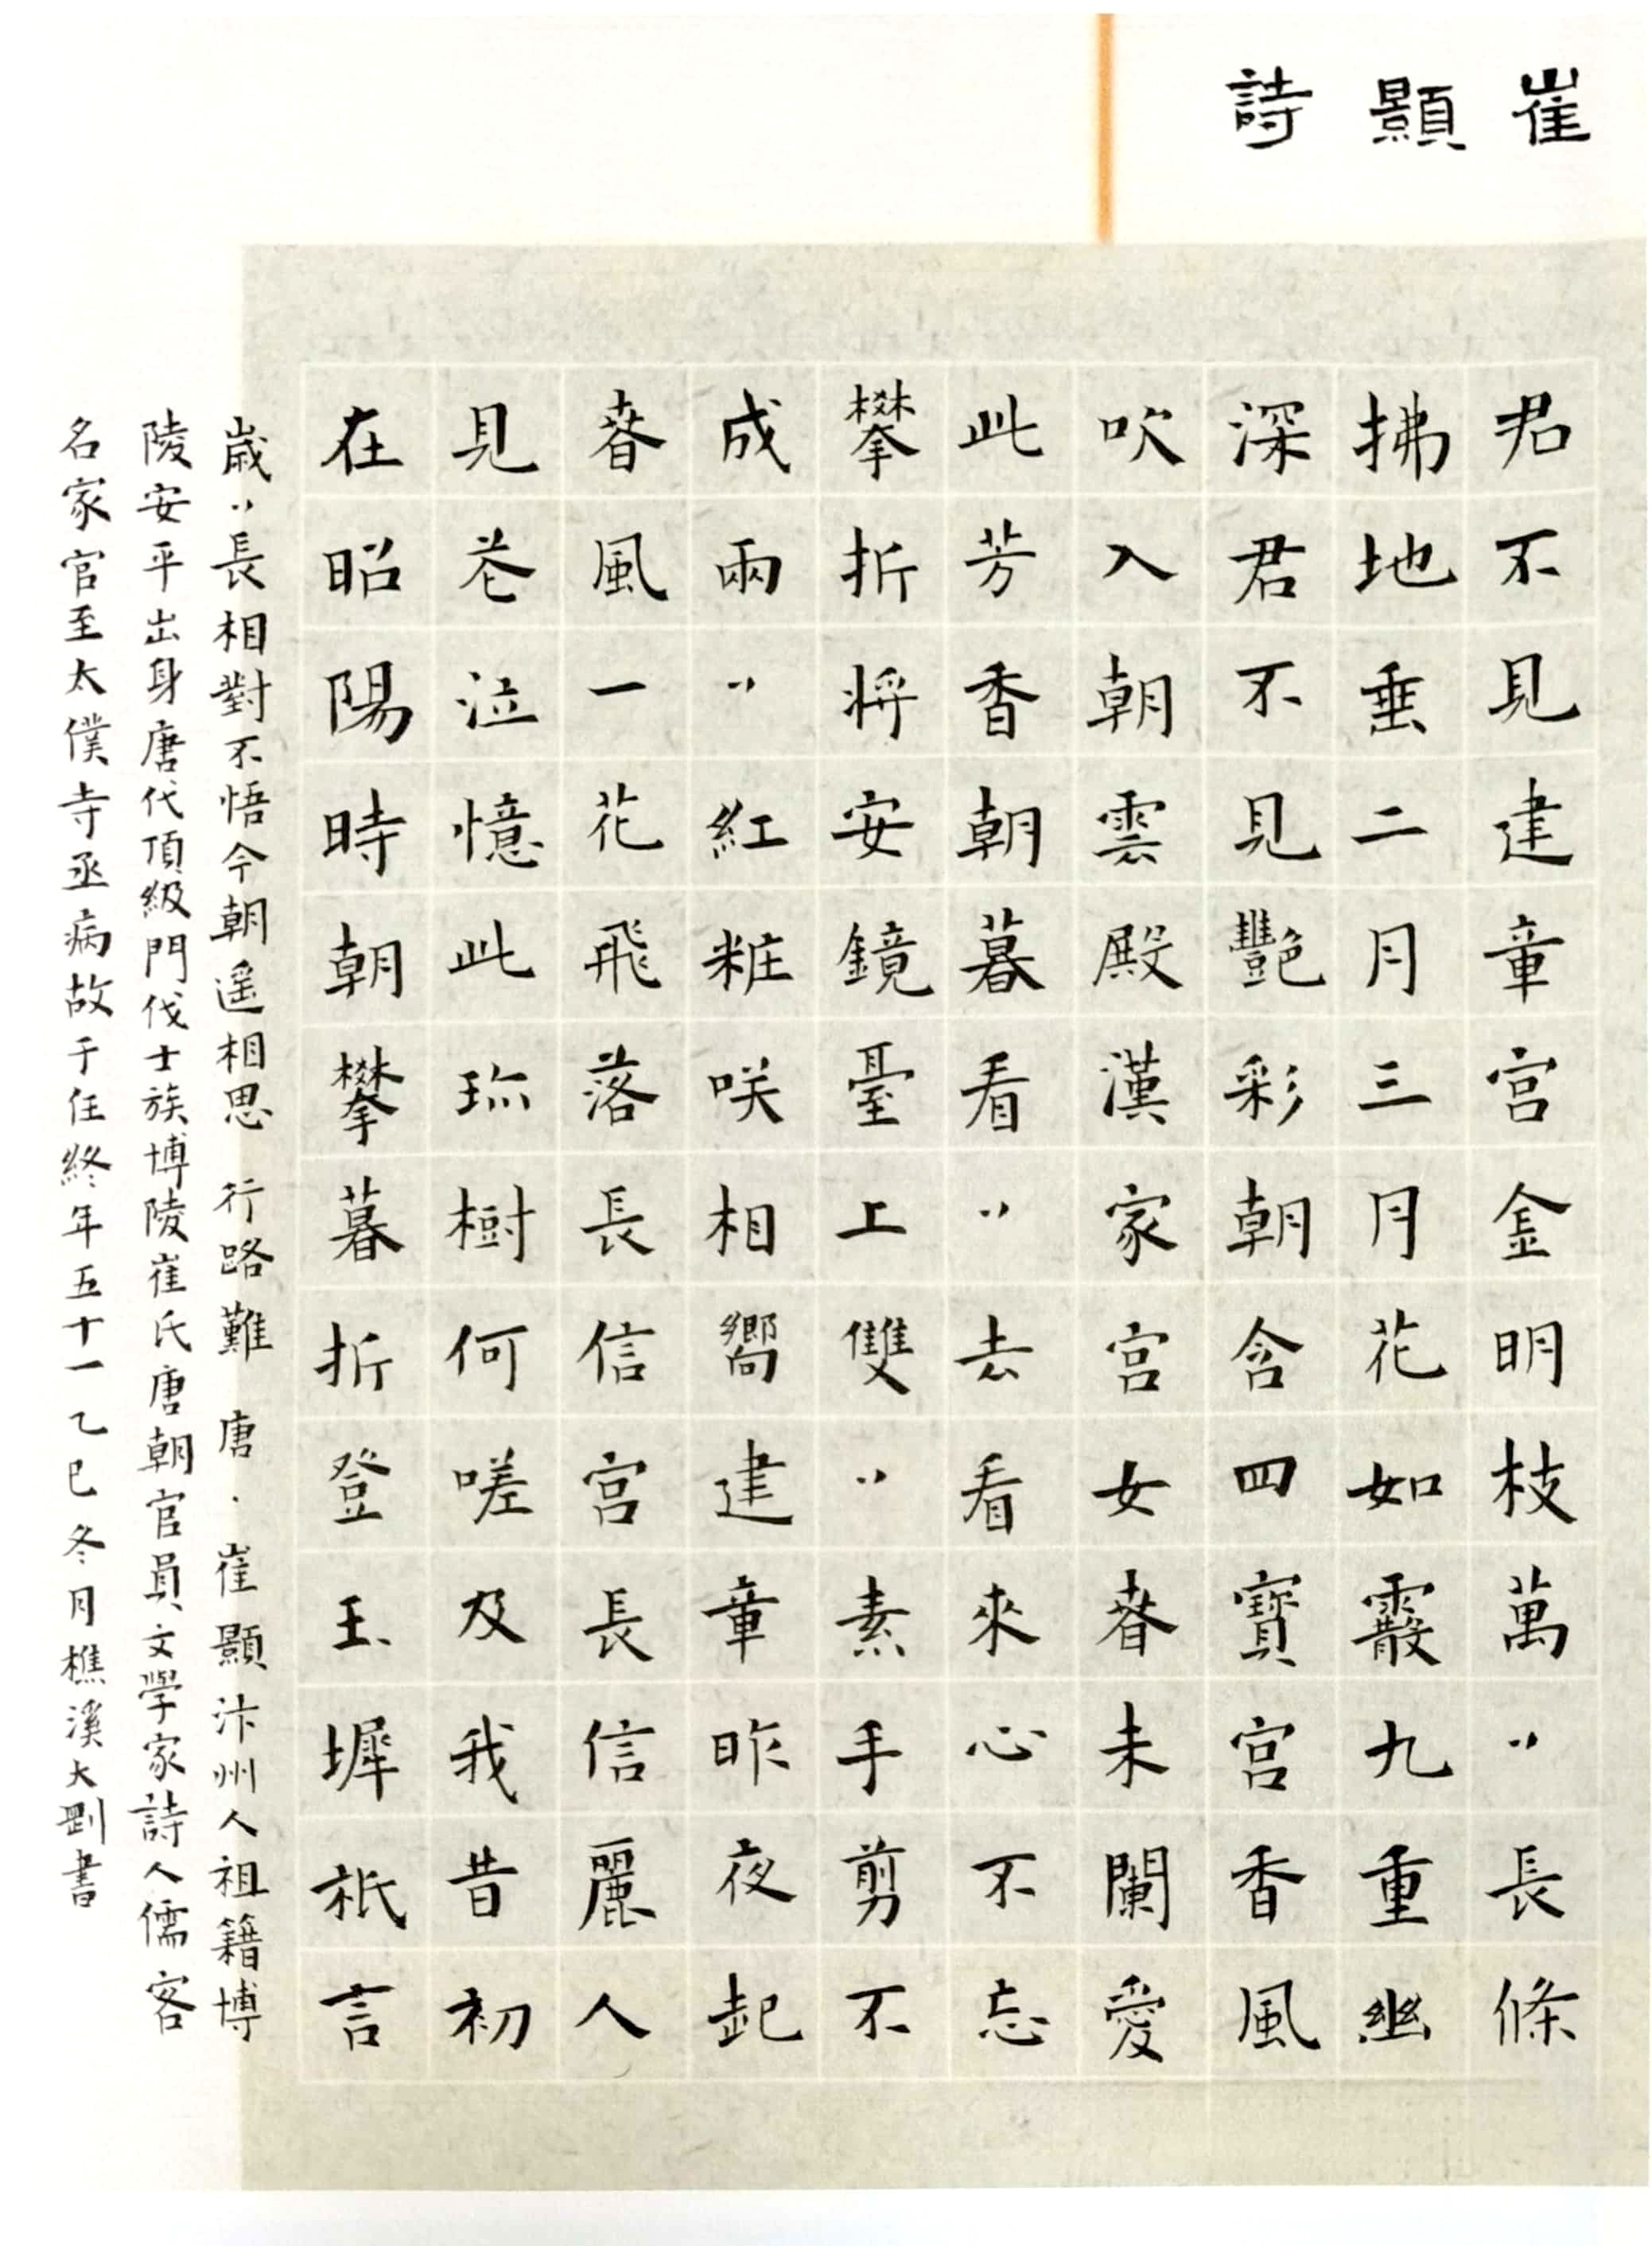 崔顥詩
君不見建章宮金明枝萬〃長條
拂地垂二月三月花如霰九重幽
深君不見艷彩朝含四寶宮香風
吹入朝雲殿漢家宮女春未闌愛
此芳香朝暮看〃去看來心不忘
攀折將安鏡臺上雙〃素手剪不
成兩〃紅粧咲相嚮建章昨夜起
春風一花飛落長信宮長信麗人
見花泣憶此珎樹何嗟及我昔初
在昭陽時朝攀暮折登玉墀祇言
歲〃長相對不悟今朝遥相思 行路難 唐·崔顥汴州人祖籍博
陵安平出身唐代頂級門伐士族博陵崔氏唐朝官員文學家詩人儒客
名家官至太僕寺丞病故于任終年五十一乙巳冬月樵溪大剛書